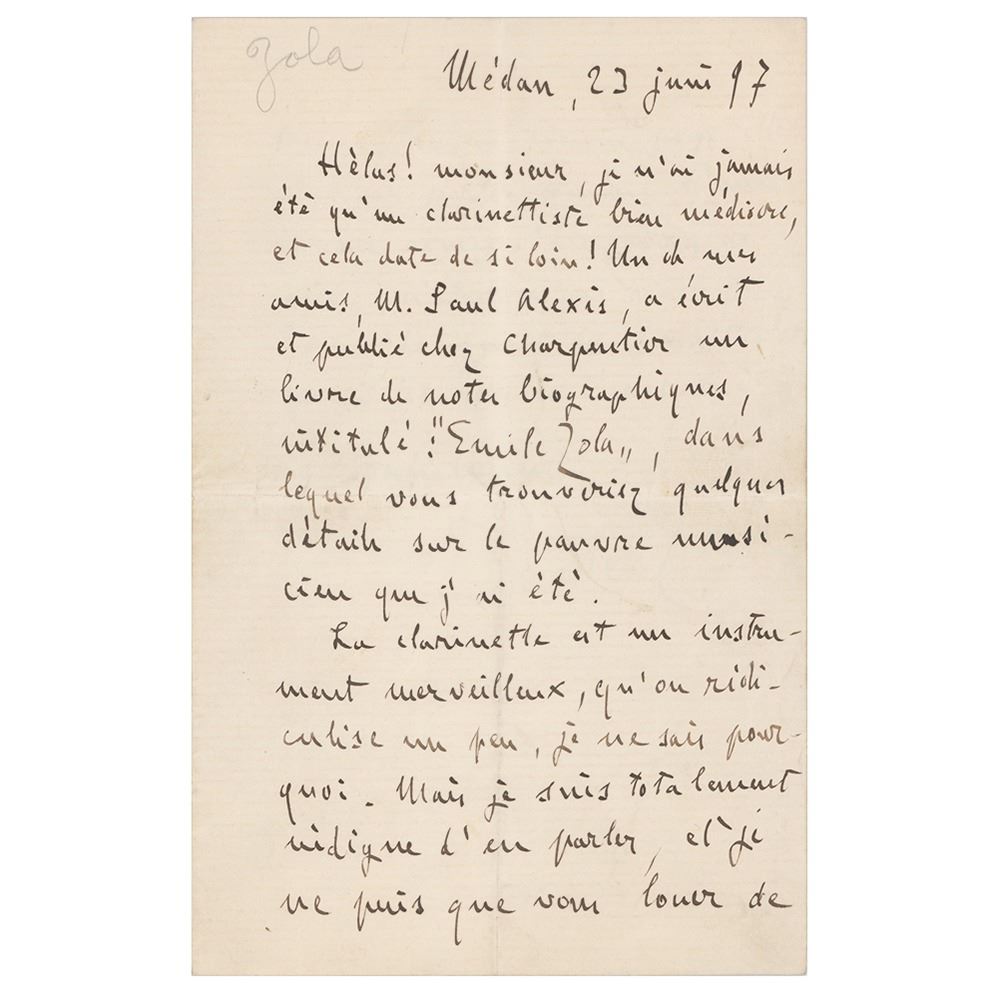 Zola
Médan, 23 juin 97
Hélas! monsieur, je n'ai jamais
été qu'un clarinettiste bien médiocre,
et cela date de si loin! Un de mes
amis, M. Paul Alexis, a écrit
et publié chez Charpentier un
livre de notes biographiques,
intitulé : "Emile Zola„, dans
lequel vous trouveriez quelques
détails sur le pauvre musi-
cien que j'ai été.
La clarinette est un instru-
ment merveilleux, qu'on ridi-
culise un peu, je ne sais pour-
quoi. Mais je suis totalement
indigne d'en parler, et je
ne puis que vous louer de